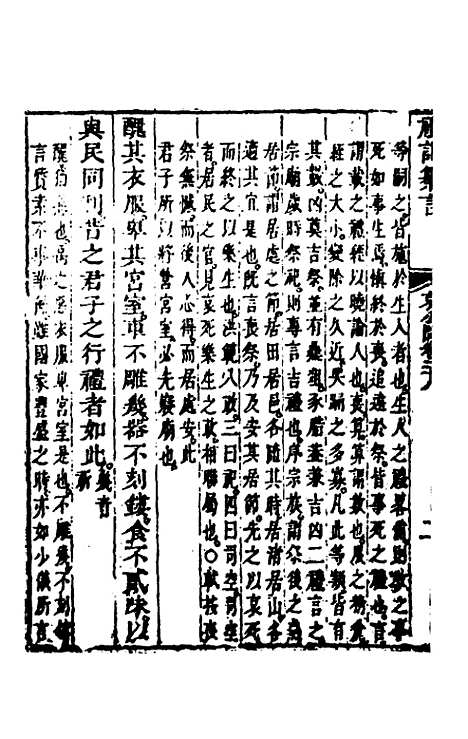 禮記纂言
等嗣之皆施於生人者也生人之禮畧備則教之事
死如事生焉慎終於喪追遠於祭皆事死之禮也言
謂載之禮經以曉諭人也喪算謂數也
經之大小變除之久近哭踊之多寡凡此等類皆有
其數凶莫吉祭並有豕腊兼吉凶二禮言之
宗廟歲時祭祀則專言吉禮也序宗族謂祭後之
居節謂居處之節居田居邑各隨其時居
適其宜是也既言喪祭乃及安其居節先之以哀死
而終之以樂生也洪範八政三曰祀四曰司空司空
者居民之官見哀死樂生之政相聯屬也○敖
祭無憾而後人心得而居處安此
君子所以將營宮室必先宗廟也
醜其衣服卑其宮室車不雕幾器不刻鏤食不貳味以
與民同利昔之君子之行禮者如此幾音祈
醜猶惡也禹之惡衣服卑宮室是也不雕幾不刻鏤
言質素不事華國家豐盛之時亦如少儀所言